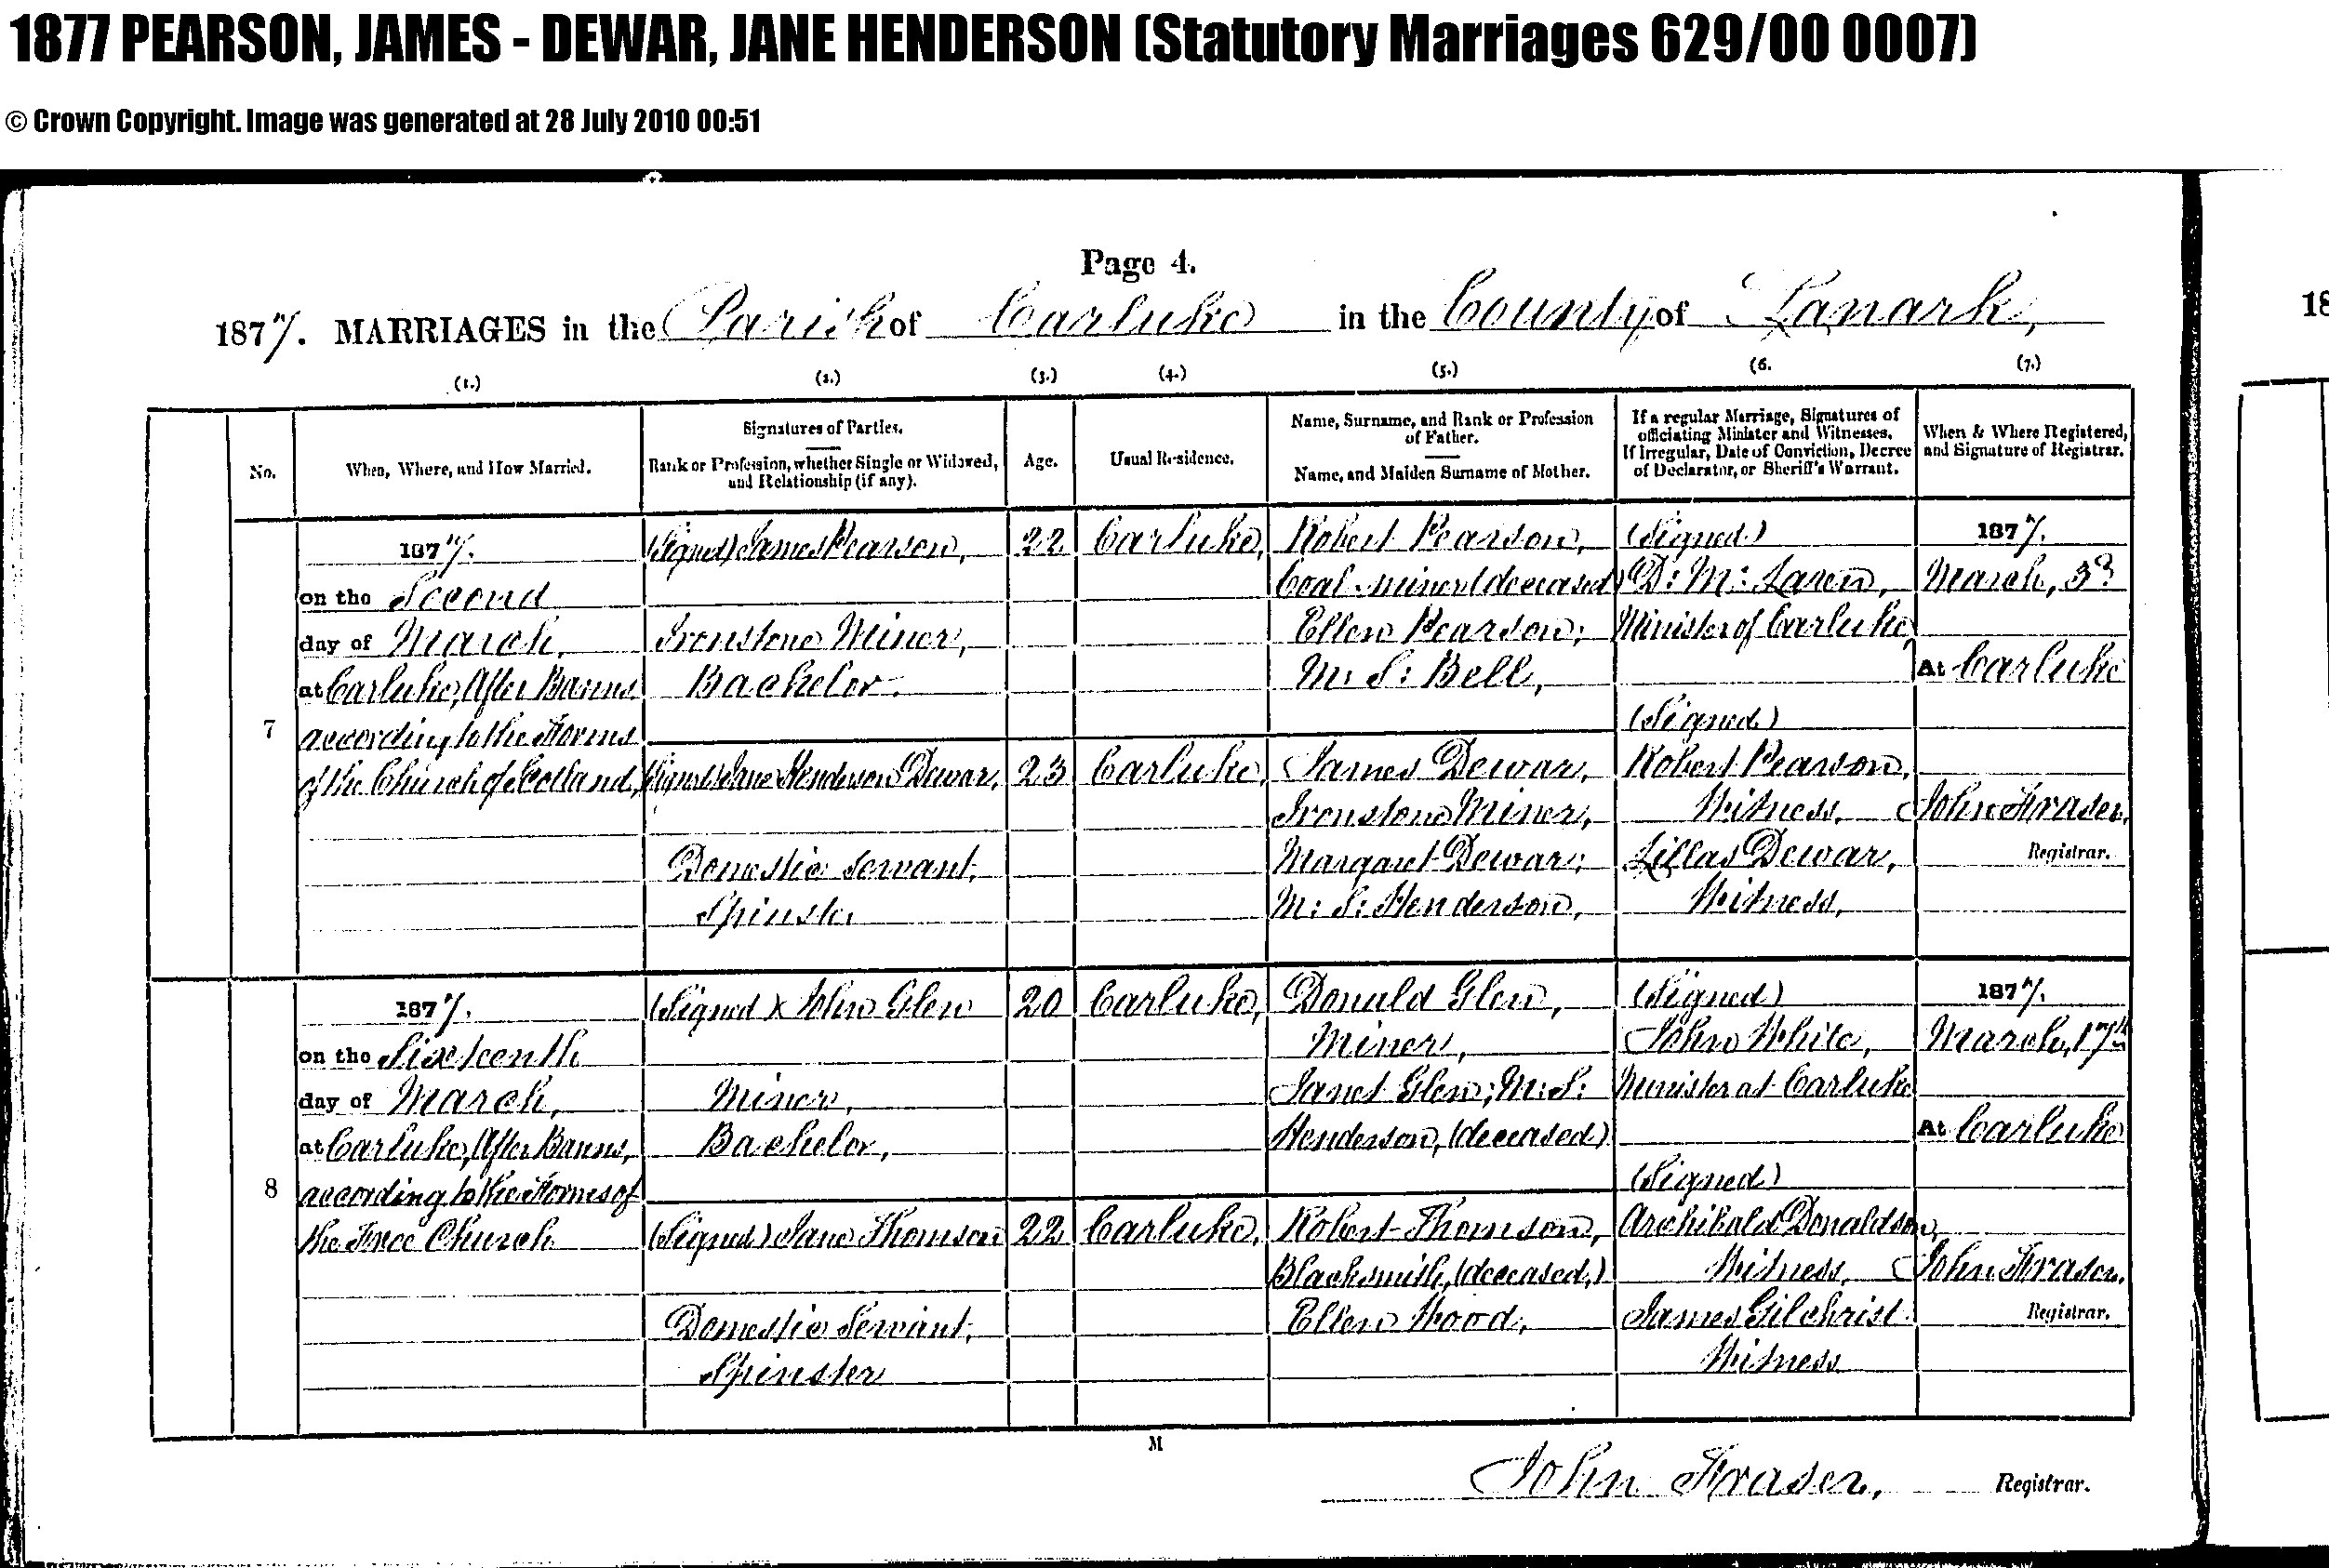 1877 PEARSON, JAMES - DEWAR, JANE HENDERSON (Statutory Marriages 629/00 0007)
© Crown Copyright. Image was generated at 28 July 2010 00:51
Page 4.
1877. MARRIAGES in the Parish of Carluke in the County of Lanark,
18
(1.) (2.) (3.) (4.) (5.) (6. (7.)
No.
When, Where, and How Married.
Signatures of Parties.
Rank or Profession, whether Single or Widowed,
and Relationship (if any).
Age.
Usual Residence.
Name, Surname, and Rank or Profession
of Father.
Name, and Maiden Surname of Mother.
If a regular Marriage, Signatures of
officiating Minister and Witnesses.
If Irregular, Date of Conviction, Decree
of Declarator, or Sheriff's Warrant.
When & Where Registered,
and Signature of Registrar.
7
1877.
on the Second
day of March,
at Carluke, After Banns
according to the Forms
of the Church of Scotland,
(Signed) James Pearson,
Ironstone Miner,
Bachelor.
22
Carluke,
Robert Pearson,
Coal-miner (deceased)
Ellen Pearson;
M.S: Bell,
(Signed) Jane Henderson Dewar,
Domestic Servant,
Spinster
23
Carluke,
James Dewar,
Ironstone Miner,
Margaret Dewar;
M:S: Henderson,
(Signed)
D: Mc: Laren,
Minister of Carluke,
(Signed)
Robert Pearson,
Witness.
Lillas Dewar,
Witness,
1877.
March, 3d
At Carluke
John Fraser,
Registrar.
8
1877.
on the Sixteenth
day of March,
at Carluke, After Banns,
according to the Forms of
the Free Church
(Signed) x John Glen
Miner,
Bachelor,
20
Carluke,
Donald Glen,
Miner,
Janet Glen; M:S:
Henderson, (deceased)
(Signed) Jane Thomson
Domestic Servant,
Spinster
22
Carluke,
Robert Thomson,
Blacksmith, (deceased,)
Ellen Wood,
(Signed)
John White,
Minister at Carluke
(Signed)
Archibald Donaldson,
Witness,
James Gilchrist
Witness
1877.
March, 17th
At Carluke
John Fraser.
Registrar.
M
John Fraser, Registrar.